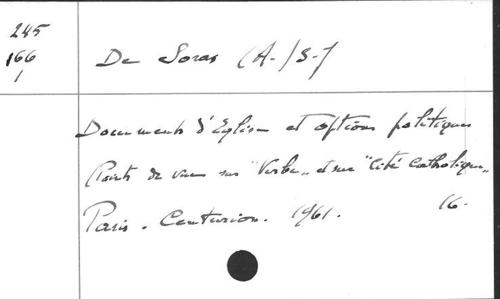 245
166
1
De Soras (A-) S-J
Documents d'Eglise et options politiques
Points de vues sur "Verbe" et sur "Cité Catholique"
Paris. Centurion. 1961. 16.